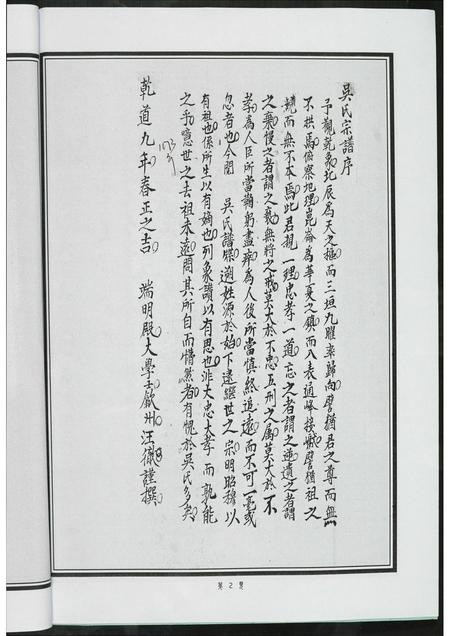 吳氏宗譜序
予觀乾象北辰為天之樞而三垣九曜來歸向譬猶君之尊而無
不拱焉俯察地理崑崙為華夏之鎮而八表通峰接巘譬猶祖之
親而無不本焉此君親一理忠孝一道忘之者謂之逆遺之者謂
之褻慢之者謂之褻無將之戒莫大於不忠五刑之屬莫大於不
孝為人臣所當鞠躬盡瘁為人後所當慎終追遠而不可一毫或
忽者也今閱 吳氏譜牒遡姓源於始下逮繼世之宗明昭穆以
有祖也係所生以有嫡也列象讚以有思也非大忠大孝而孰能
之乎噫世之去祖未遠問其所自而懵然者有愧於吳氏多矣
1173
乾道九年春正之吉 端明殿大學士歙州汪徹謹撰
第2頁